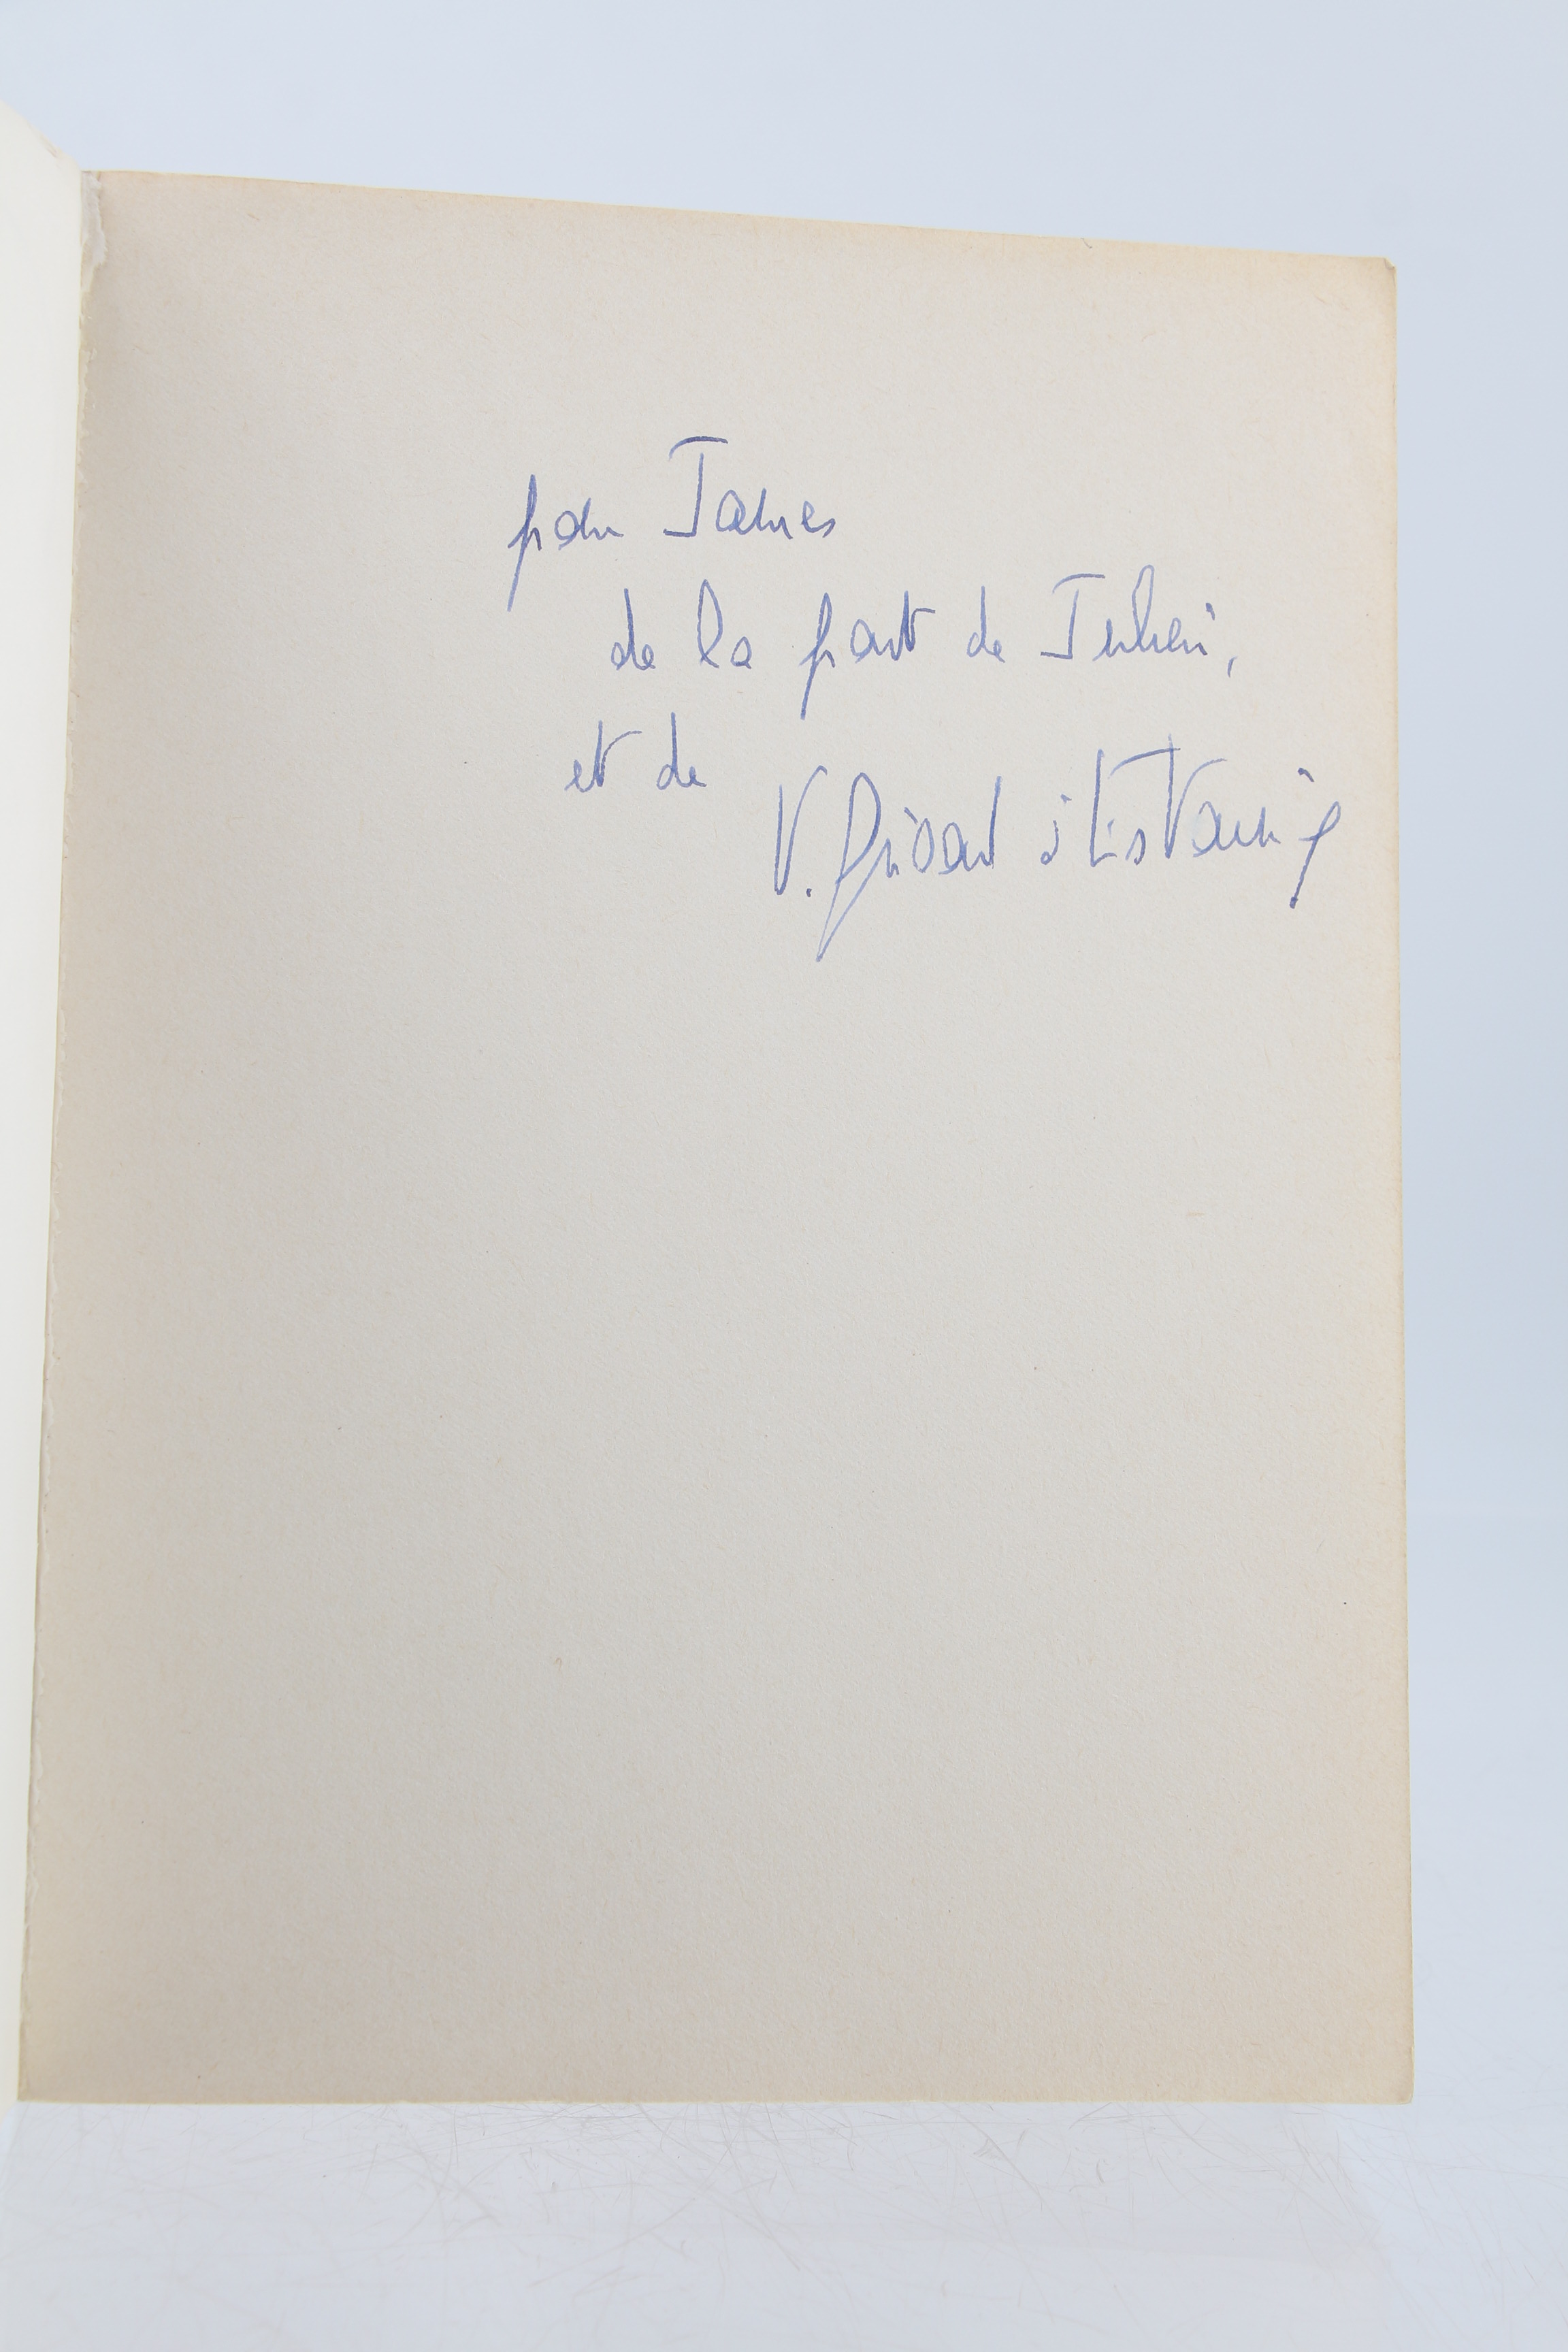 pour James
de la part de Julien,
et de
V. Giscard d'Estaing